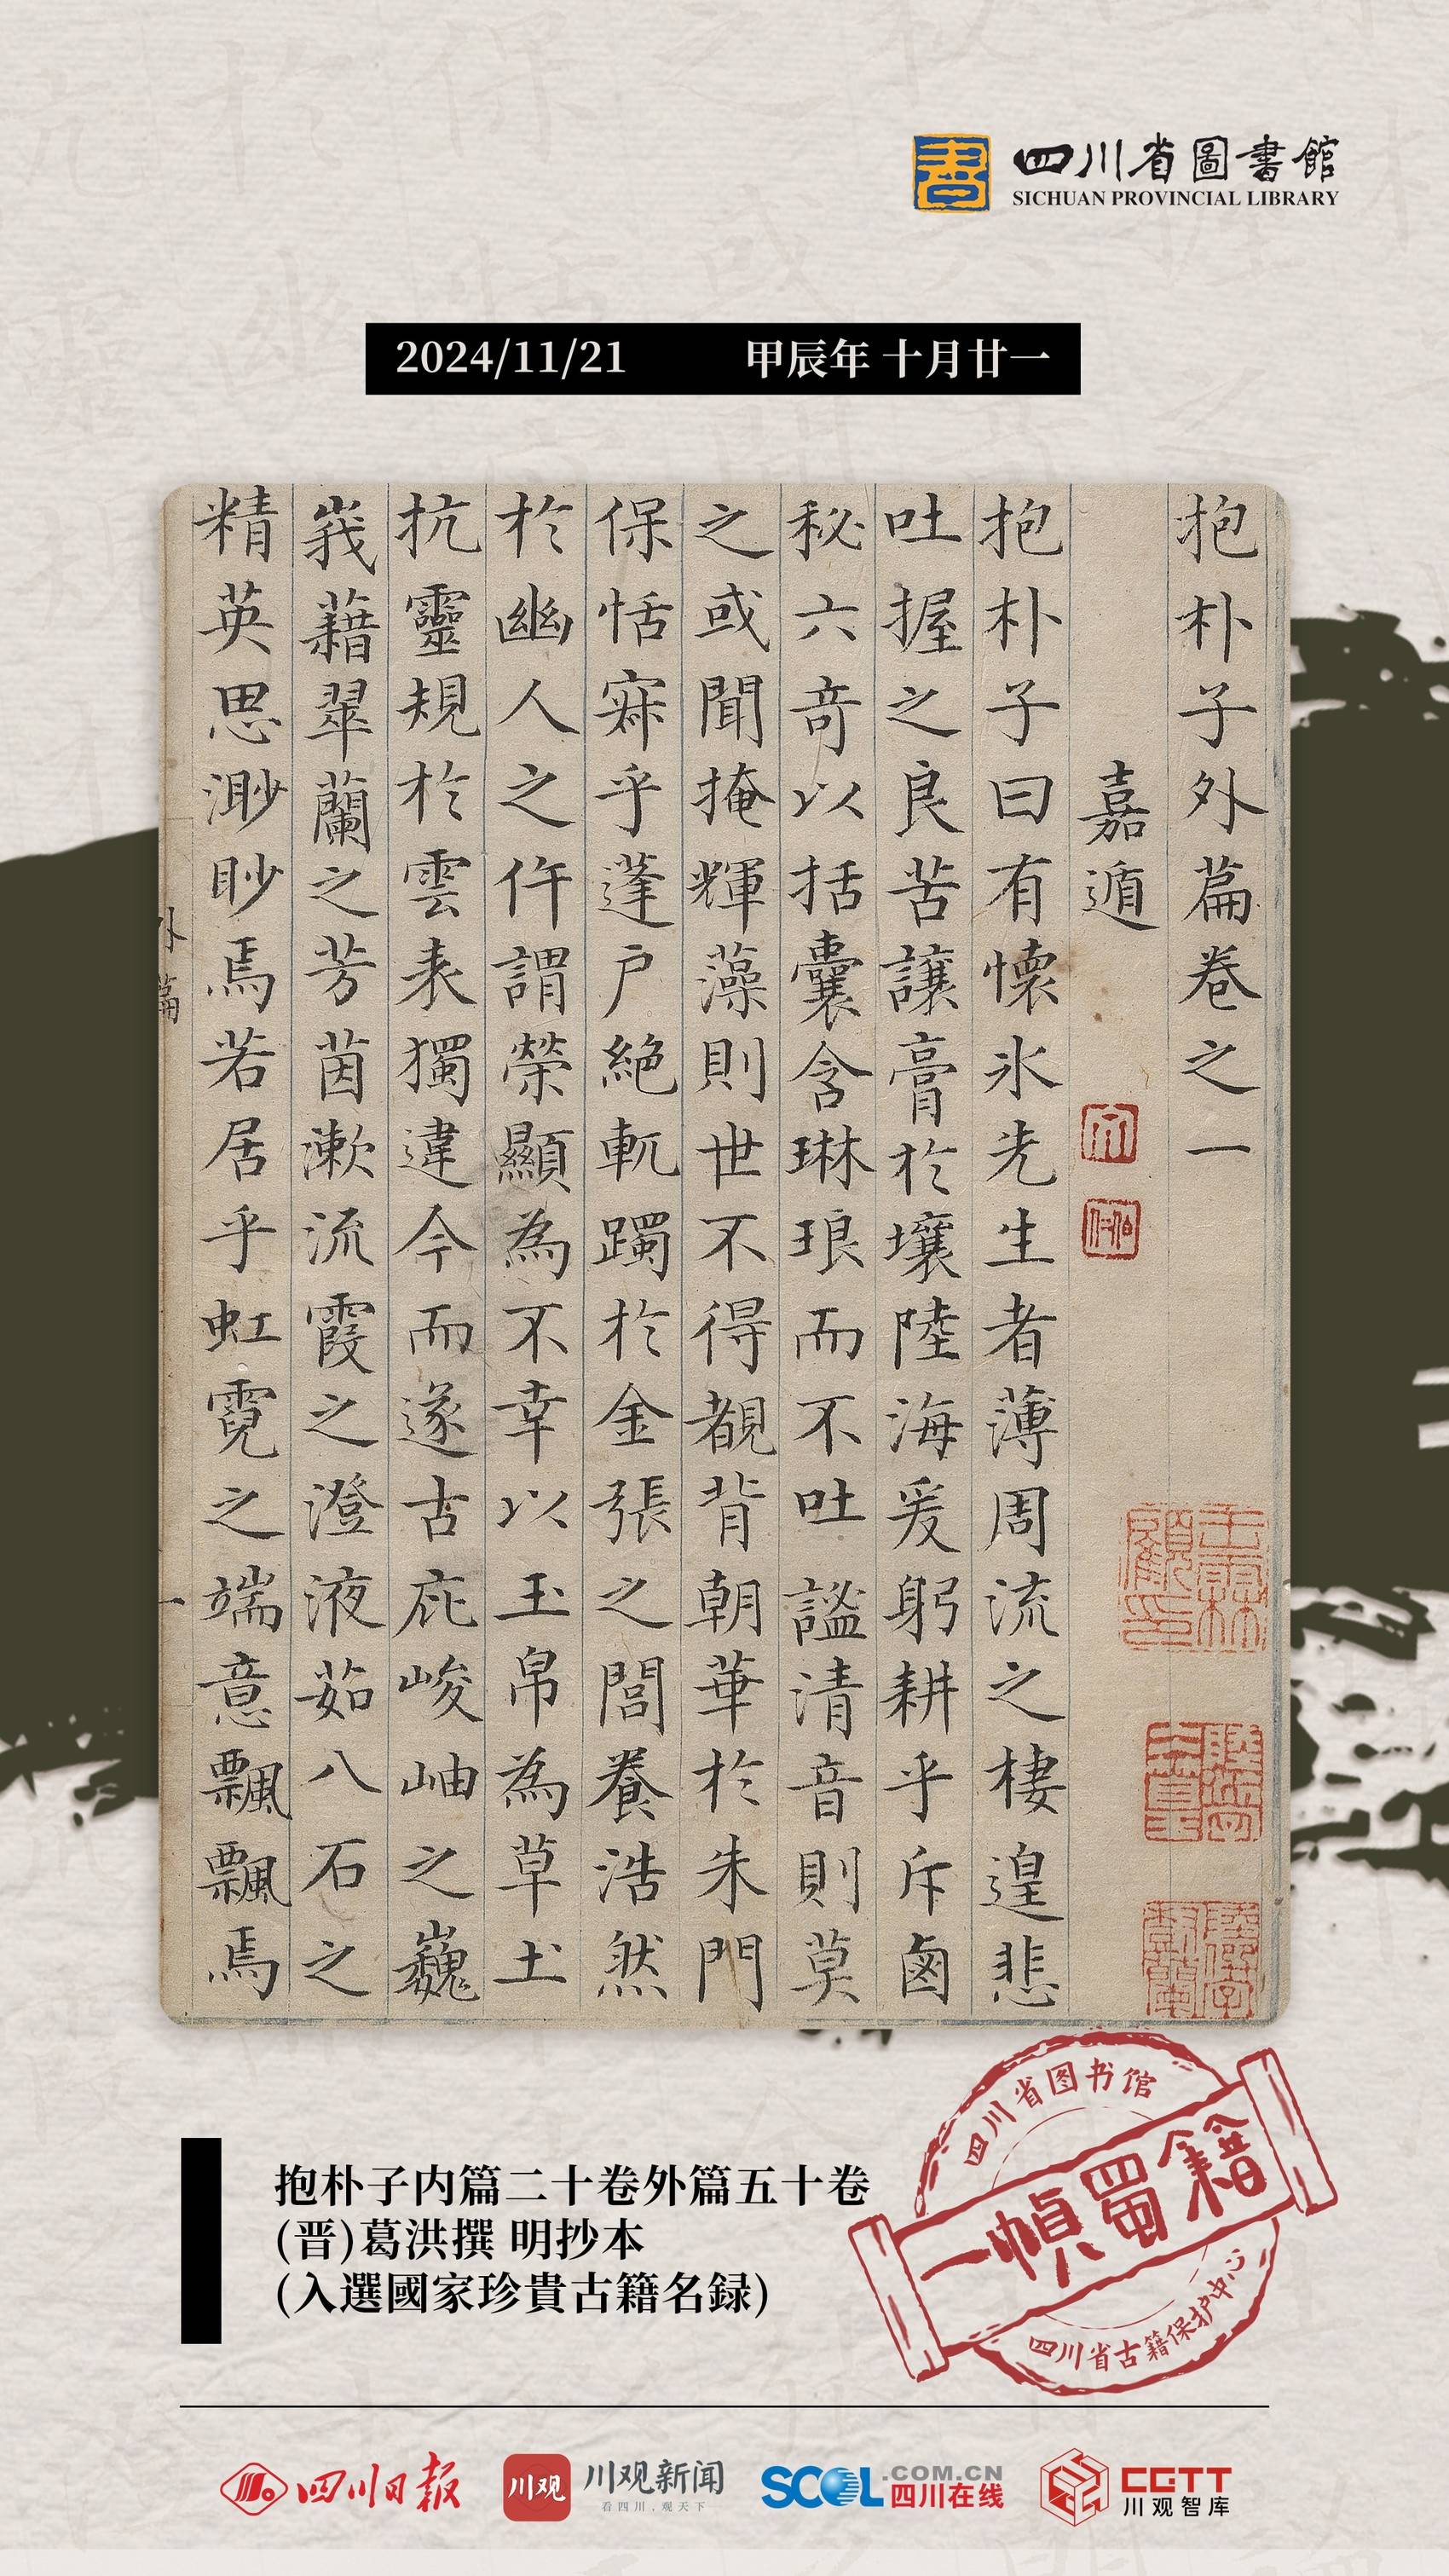 四川省圖書館
SICHUAN PROVINCIAL LIBRARY
2024/11/21 甲辰年 十月廿一
抱朴子外篇卷之一
嘉遁
抱朴子曰有懷氷先生者薄周流之棲遑悲
吐握之良苦讓膏於壤陸海爰躬耕乎斥鹵
秘六竒以括囊含琳琅而不吐謐清音則莫
之或聞掩輝藻則世不得覩背朝華於朱門
保恬寂乎蓬户絶軌躅於金張之閭養浩然
於幽人之仵謂榮顯為不幸以玉帛為草土
抗靈規於雲表獨違今而遂古庇峻岫之巍
峩藉翠蘭之芳茵漱流霞之澄液茹八石之
精英思渺眇焉若居乎虹霓之端意飄飄焉
外篇
一
四川省图书馆
一幀蜀籍
四川省古籍保护中心
抱朴子内篇二十卷外篇五十卷
(晋)葛洪撰 明抄本
(入選國家珍貴古籍名録)
四川日报
川观
川观新闻
看四川,观天下
SCOL.COM.CN
四川在线
CGTT
川观智库